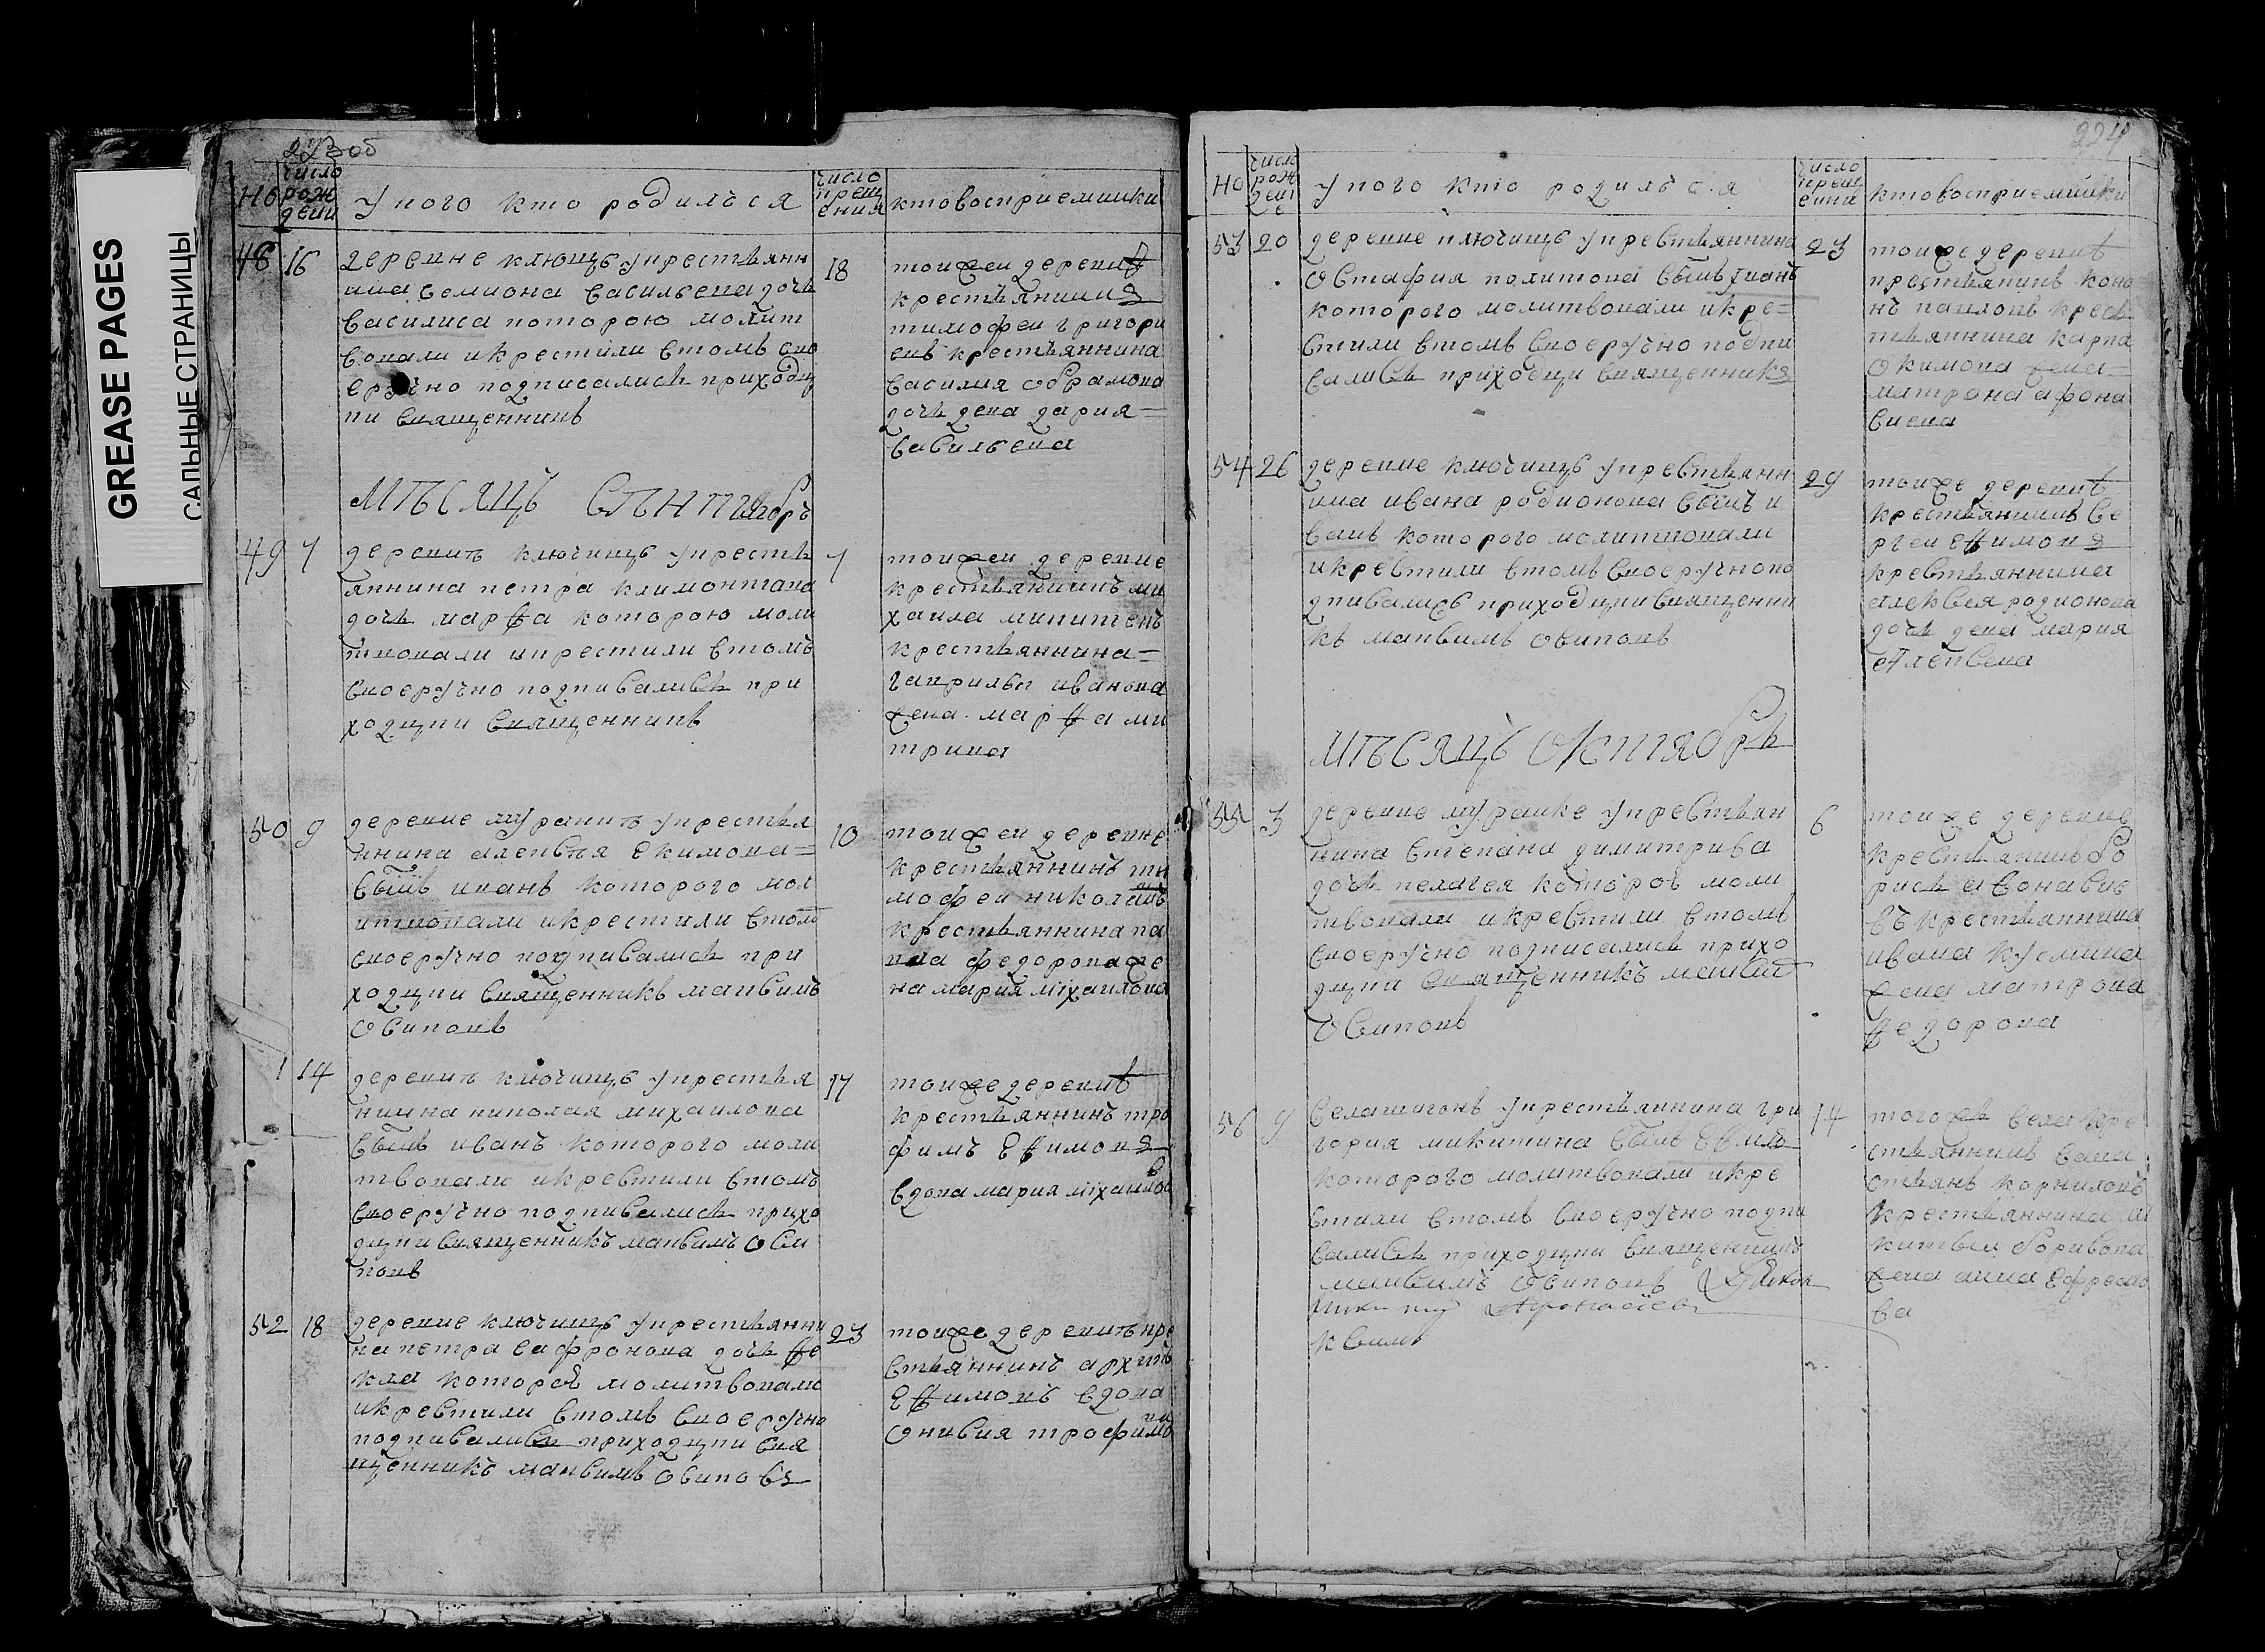 GREASE PAGES
САЛЬНЫЕ СТРАНИЦЫ
223об
но
число рождени
у ково кто родилъся
число крещения
кто восприемники
48 16
деревне ключищѣ у крестьянн
ина семиона васильева дочь
василиса которою молит
вовали и крестили втомъ сво
еручно подписались приходц
ки священникъ
18
тои жеи деревнѣ
крестьянинъ
тимофеи григори
евъ крестьяннина
василия обрамова
дочь дева дария
васильева
мѣсяцъ сѣнтябръ
49 7
деревнѣ ключищѣ у кресть
яннина петра климонтиава
дочь марѳа которою моли
твовали и крестили втомъ
своеручно подписались при
ходцки священникъ
7
тои жеи деревне
крестьянинъ ми
хаила микитенъ
крестьяннина
гаврилы иванова
жена марѳа ми
трива
50 9
деревне муранкѣ у крестья
ннина алексѣя екимова
сынъ иванъ которого мол
итвовали и крестили втомъ
своеручно подписались при
ходцки священникъ максимъ
осиповъ
10
тои жеи деревне
крестьяннинъ ти
мофеи николаивъ
крестьяннина па
вла федорова же
на мария михаилова
1 14
деревнѣ ключищѣ у крестья
ннина николая михаилова
сынъ иванъ которого моли
твовали и крестили втомъ
своеручно подписались прихо
дцки священникъ максимъ оси
повъ
17
тои же деревнѣ
крестьяннинъ тро
фимъ еѳимовъ
вдова мария михаилов
52 18
деревне ключищѣ у крестьянни
на петра сафронова дочь ѳе
кла которою молитвовали
и крестили втомъ своеручно
подписались приходцки свя
щенникъ максимъ осиповъ
23
тои же деревнѣ кре
стьяннинъ архипъ
еѳимовъ вдова
онисия трофимова
224
но
число рождение
у ково кто родилъся
число крещении
кто восприемники
53 20
деревне ключищѣ у крестьяннина
остафия политова сынъ иванъ
которого молитвовали и кре=
стили втомъ своеручно подпи
сались приходцки священникъ
23
тои же деревнѣ
крестьянинъ кона
нъ павловъ кресть
тьяннина карпа
окимова жена
матрона афона
сиева
54 26
деревне ключищѣ у крестьянн
ина ивана родионова сынъ и
ванъ которого молитвовали
и крестили втомъ своеручно по
дписались приходцки священни
къ максимъ осиповъ
29
тои же деревнѣ
крестьянинъ се
ргеи еѳимовъ
крестьяннина
алексея родионова
дочь дева мария
алексева
мѣсяцъ октябрь
55 3
деревне муранке у крестьян
нина степана димитрива
дочь пелагея которою моли
твовали и крестили втомъ
своеручно подписались прихо
дцки священникъ максим
осиповъ
6
тои же деревне
крестьянинъ бо
рисъ афонасие
въ крестьяннина
ивана кусмина
жена матрона
ѳедорова
56 9
села шигонъ у крестьяннина гри
гория микитина сынъ
которого молитвовали и кре
стили втомъ своеручно подпи
сались приходцки священникъ
максимъ осиповъ
14
того жъ села кре
стьяннинъ сава
стьянъ корниловъ
крестьяннина ми
китвы борисова
жена анна ефресо
ва